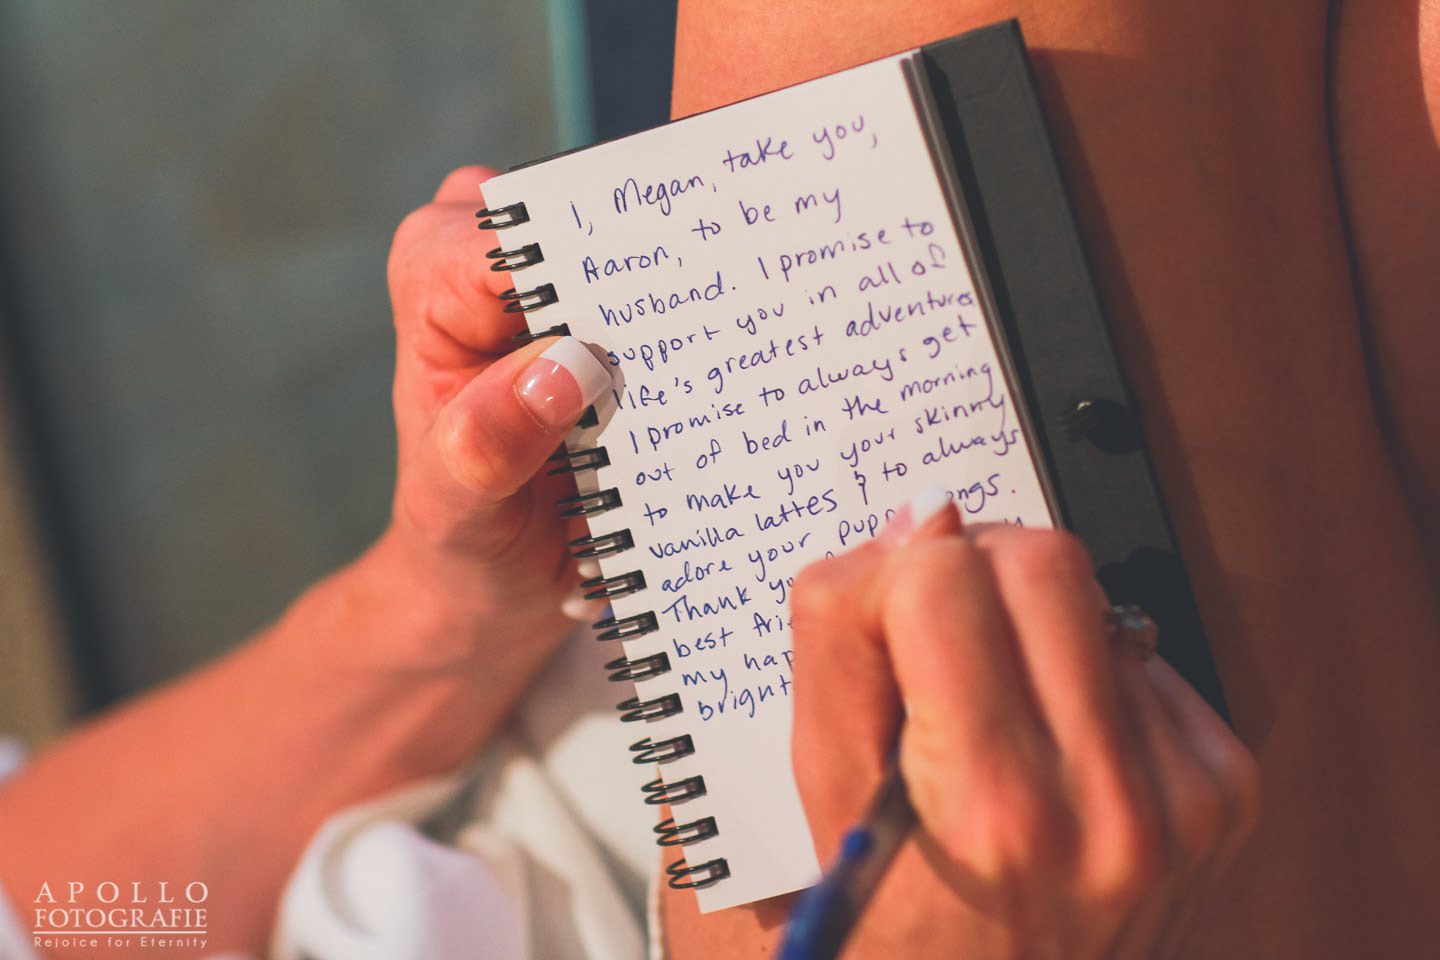 I, Megan, take you,
Aaron, to be my
husband. I promise to
support you in all of
life's greatest adventures
I promise to always get
out of bed in the morning
to make you your skinny
vanilla lattes & to always
adore your
Thank
best
my
APOLLO
FOTOGRAFIE
Rejoice for Eternity